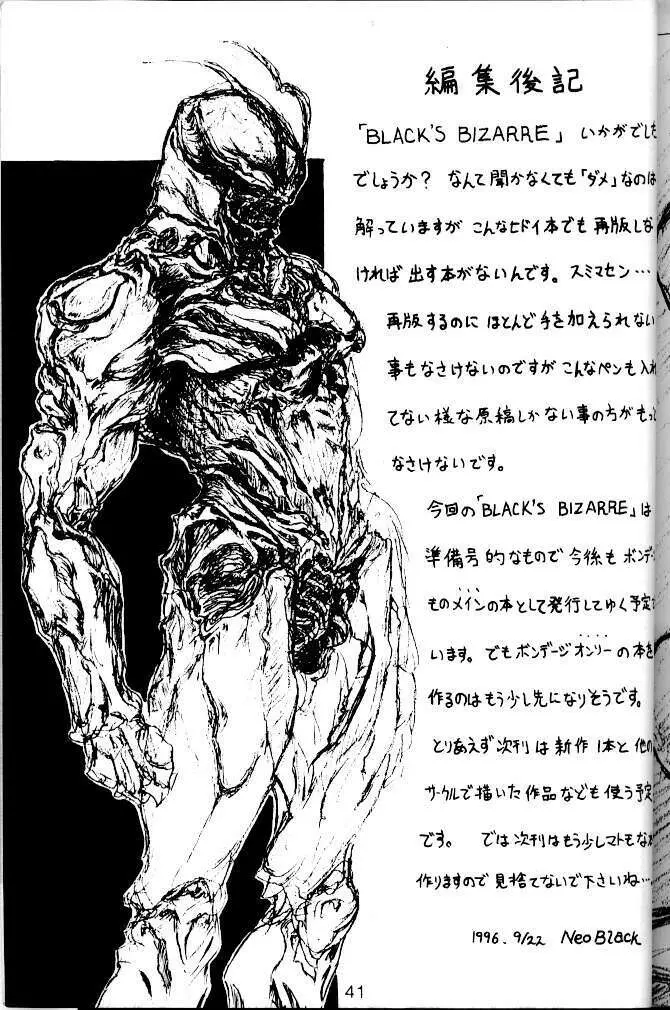 編集後記
「BLACK'S BIZARRE」いかがでしも
でしょうか? なんて聞かなくても「ダメ」なのは
解っていますが こんなヒドイ本でも再版しな
ければ 出す本がないんです。スミマセン…
再版するのに ほとんど手を加えられない
事もなさけないのですが こんなペンも入れ
てない様な原稿しかない事の方がもっ
なさけないです。
今回の「BLACK'S BIZARRE」は
準備号的なもので今後もボンデー
ものメインの本として発行してゆく予定で
います。でもボンデージオンリーの本を
作るのはもう少し先になりそうです。
とりあえず次刊は新作1本と他の
サークルで描いた作品なども使う予定
です。 では次刊はもう少しマトモな
作りますので見捨てないで下さいね…
1996. 9/22 Neo Black
41